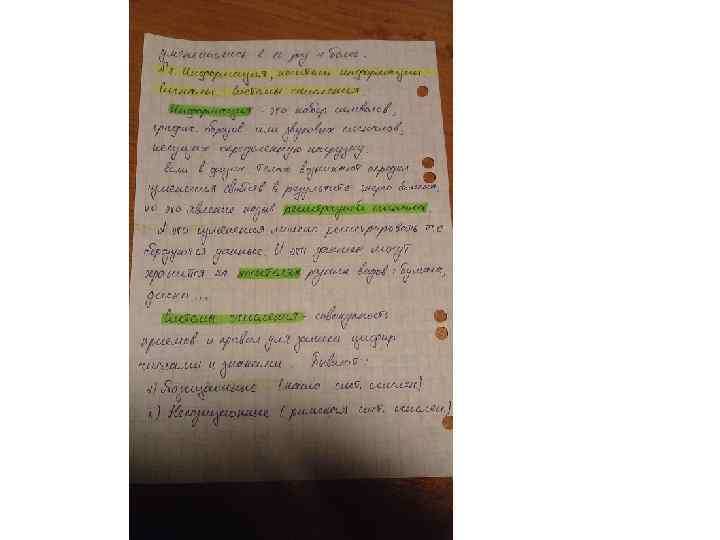 уменьшались в 10 раз и более.
№2. Информация, носители информации
сигналы. Системы счисления
Информация - это набор символов,
график. образов или звуковых сигналов,
несущих определенную нагрузку.
Если в физич. телах возникают
изменения свойств в результате обмена,
то это явление назыв. регистрацией сигналов.
А эти изменения можно регистрировать т.е.
образуются данные. И эти данные могут
храниться на носителях разных видов: бумага,
диски ...
Системы счисления - совокупность
приемов и правил для записи цифр
числами и знаками. Бывают:
1) Позиционные (наша сист. счислен)
2) Непозиционные (римская сист. счислен.)